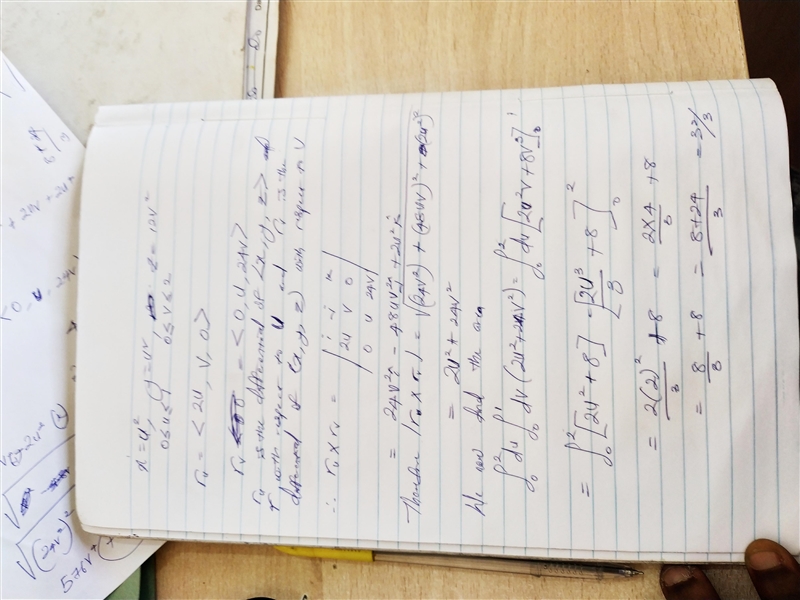 x = u², y = uv, z = 12v²
0 ≤ u ≤ 1 0 ≤ v ≤ 2
ru = <2u, v, 0>
rv = <0, u, 24v>
ru is the differential of <x, y, z> and
r with respect to u and rv is the
differential of (x, y, z) with respect to v
∴ ru × rv = | i j k |
| 2u v 0 |
| 0 u 24v |
= 24v²i − 48uvj + 2u²k
Therefore |ru × rv| = √(24v²) + (48uv)² + (2u²)²
= 2u² + 24v²
We can find the area
∫₀² du ∫₀¹ dv (2u² + 24v²) = ∫₀² du [2u²v + 8v³]₀¹
= ∫₀² [2u² + 8] = [2u³/3 + 8]₀²
= 2(2)²/3 + 8 = 2×4/3 + 8
= 8/3 + 8 = 8+24/3 = 32/3
<0, u, 24v>
576v⁴